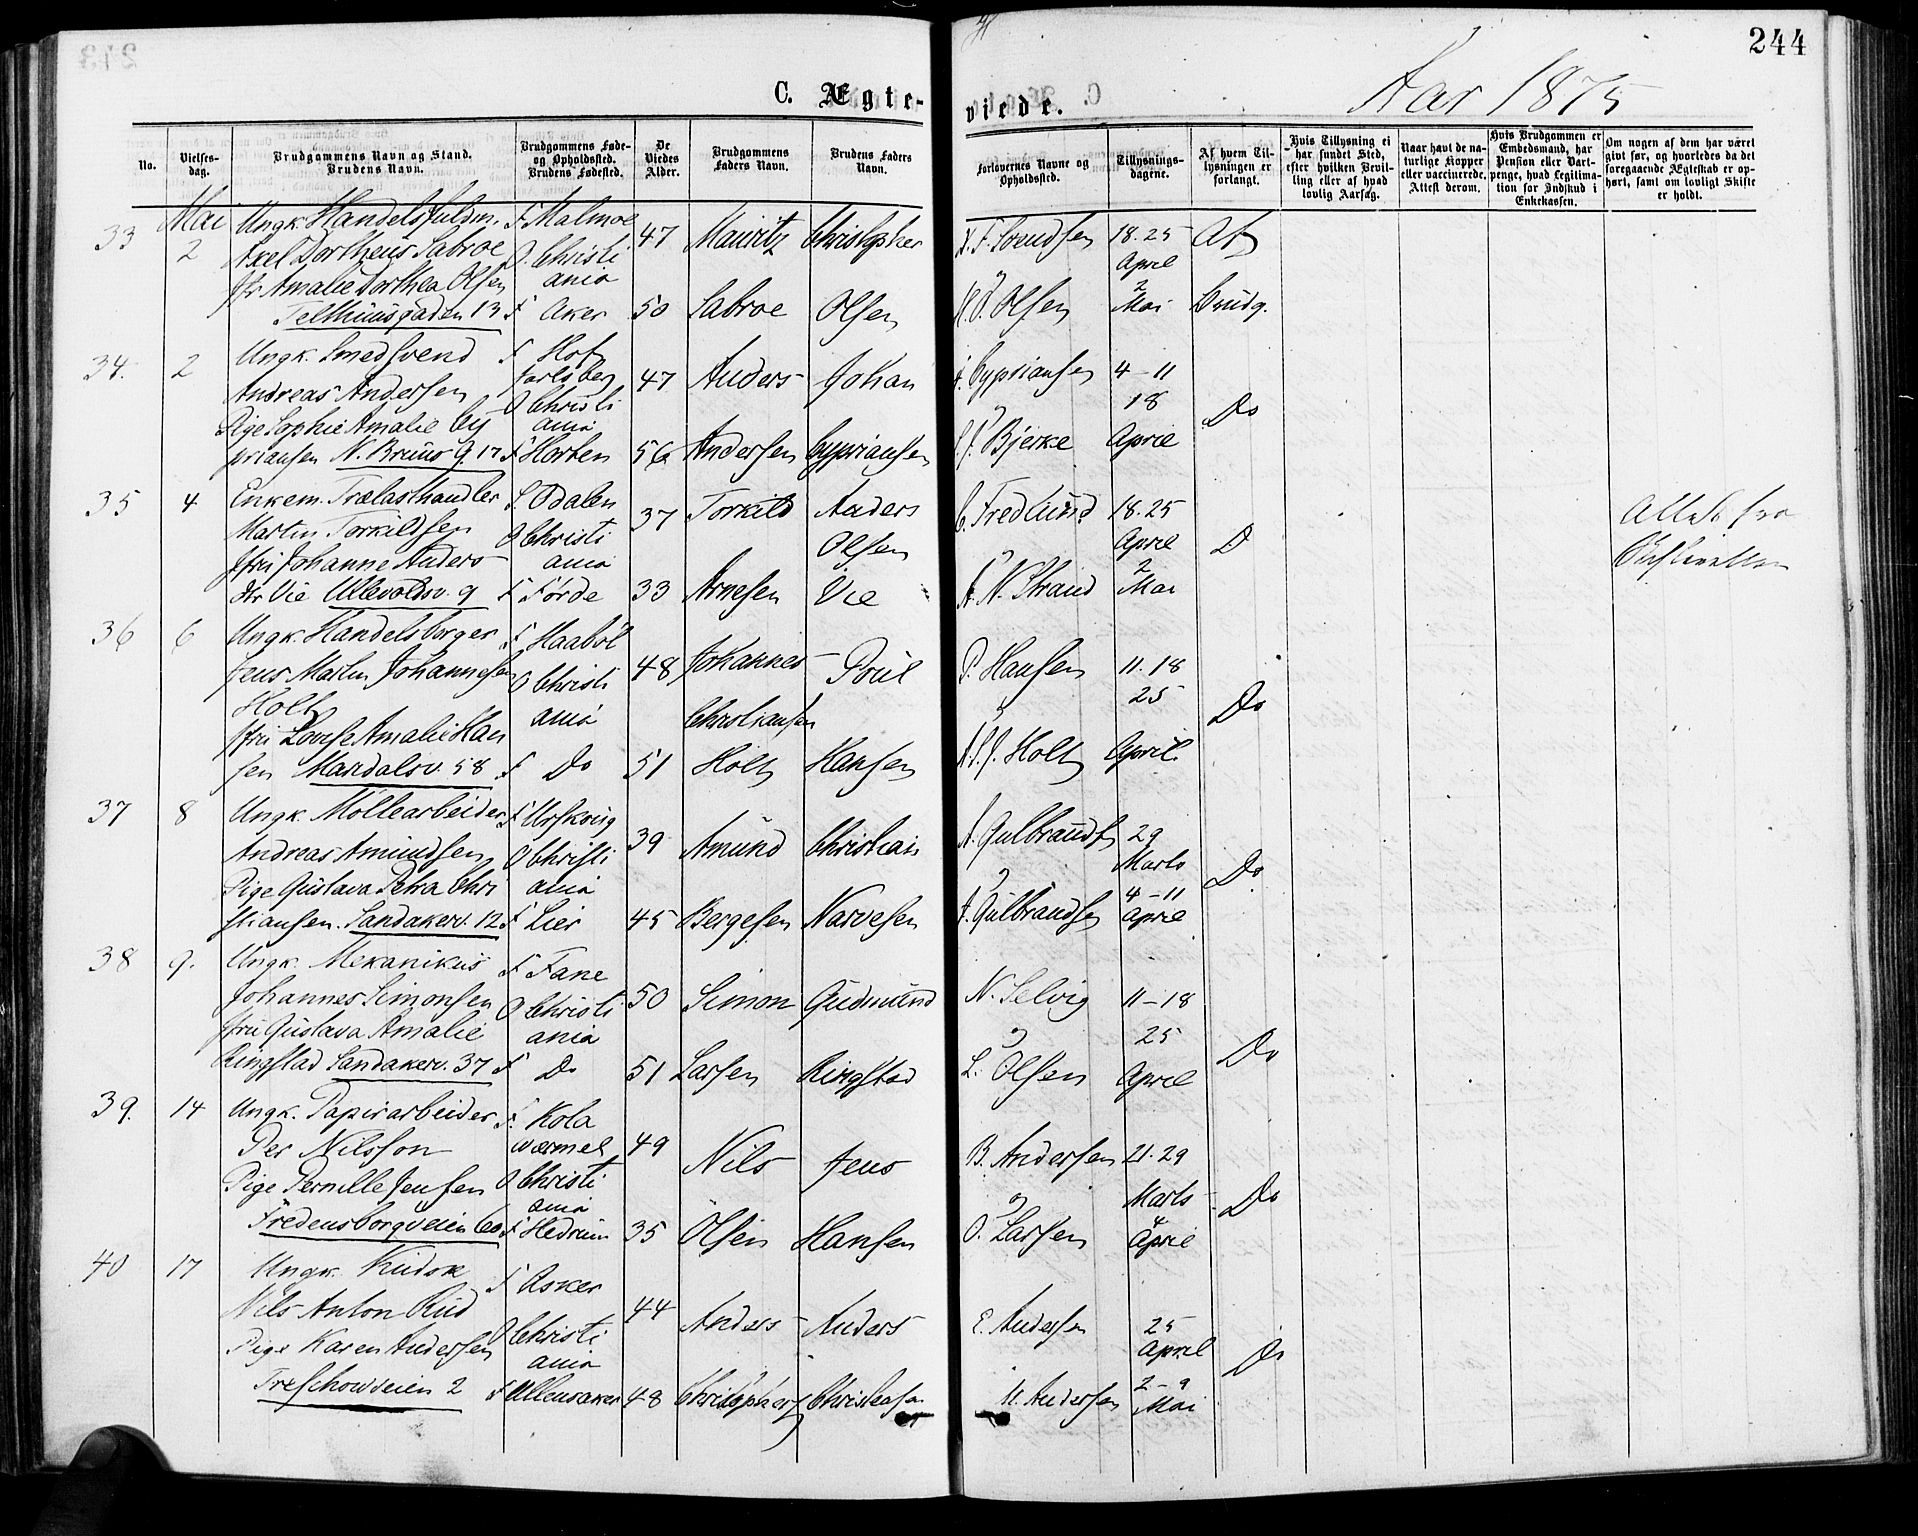 244
C. Ægte-
viede.
Aar 1875
No.
Vielses-
dag.
Brudgommens Navn og Stand.
Brudens Navn.
Brudgommens Føde-
og Opholdssted.
Brudens Fødested.
De
Viedes
Alder.
Brudgommens
Faders Navn.
Brudens Faders
Navn.
Forlovernes Navne og
Opholdssted.
Tillysnings-
dagene.
Af hvem Til-
lysningen er
forlangt.
Hvis Tillysning ei
har fundet Sted,
efter hvilken Bevil-
ling eller af hvad
lovlig Aarsag.
Naar havt de na-
turlige Kopper
eller vaccinerede.
Attest derom.
Hvis Brudgommen er
Embedsmand, har
Pension eller Vart-
penge, hvad Legitima-
tion for Indskud i
Enkekassen.
Om nogen af dem har været
gift før, og hvorledes da det
foregaaende Ægteskab er op-
hørt, samt om lovligt Skifte
er holdt.
Mai
33 2 Ungk. Handelsfuldm. F Malmoe 47 Mauritz Christopher N. F. Svendsen 18. 25 Af
Axel Dortheus Sabroe O. Christi April
Jfr Amalie Dorthea Olsen ania & 2
Telthusgaden 13 F Aker 50 Sabroe Olsen H. O. Olsen Mai brudg.
34. 2 Ungk. Smed Svend F Hof
Andreas Andersen Jarlsberg 47 Anders Johan A. Cypriansen 4 - 11
Pige Sophie Amalie Cy O Christi & 18 Do
ania
priansen N. Bruns G. 17 F Horten 56 Andersen Cypriansen Bjerke April
35 4 Enkem. Trælasthandler S. Odalen 37 Torkild Anders C. Fredlund 18. 25
Martin Torkildsen O Christi Olsen April D
Jfru Johanne Anders ania & 2
dtr Vie Ullevoldsv. 9 F Förde 33 Arnesen Vie A. N. Strand Mai
Attest fra
36 6 Ungk. Handelsborger F Haaböl
Jens Martin Johannesen O Christi 48 Johannes Poul P. Hansen 11. 18
Holt ania Christiansen & 25 Do
Jfru Lovise Amalie Han
sen Maridalsv. 58 F Do 51 Holt Hansen Holt April
37 8 Ungk. Möllearbeider F Urskoug 39 Amund Christian A. Gulbrands 29
Andreas Amundsen O Christi Marts
Pige Gustava Petra Chri ania & 4 - 11 Do
stiansen. Sandakerv. 12 F Lier 45 Bergesen Narvesen A. Gulbrandsen April
38 9. Ungk. Mekanikus F Fane
Johannes Simonsen O Christi 50 Simon Gudmund N. Selvig 11 - 18
Jfru Gustava Amalie ania & 25
Ringstad Sandakerv. 37 F Do 51 Larsen Ringstad L. Olsen April Do
39. 14 Ungk. Papirarbeider F. Kola
Per Nilsson Wærmel 49 Nils Jens B. Andersen 21. 29
Pige Pernille Jensen O Christi & Marts Do
ania 4
Fredensborgveien 60 F Hedrum 35 Olsen Hansen O. Larsen April
40 17 Ungk. Kudsk F Asker
Nils Anton Rud 44 Anders Anders E. Andersen 25
Pige Karen Andersen O Christi April Do
ania 2 - 9
Treschowveien 2 F Ullensaker 48 Christophers Christensen M. Andersen Mai